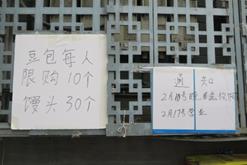 豆包每人
限购10个
馒头30个
通 知
2月1
2月17号营业